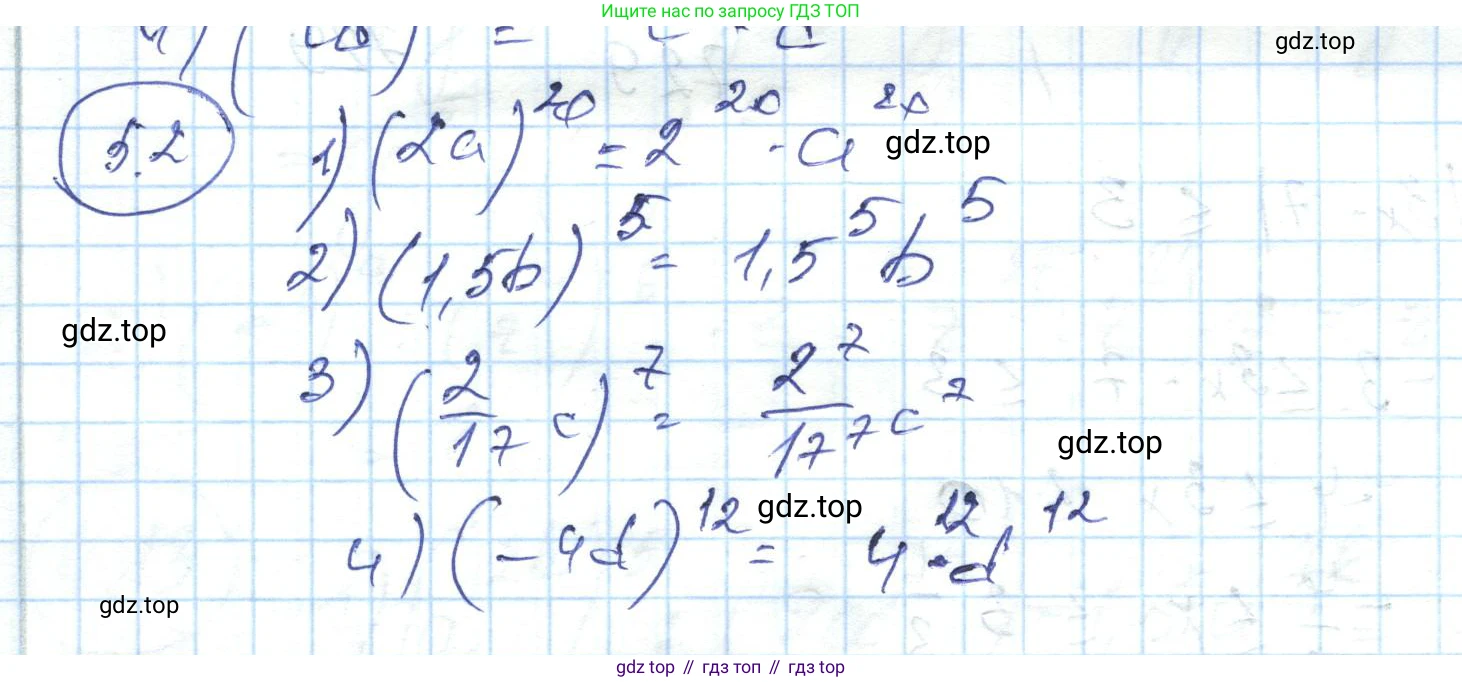 Ищите нас по запросу ГДЗ ТОП
gdz.top
5.2
1) (2a)^20 = 2^20 · a^20
gdz.top
2) (1,5b)^5 = 1,5^5 b^5
gdz.top
3) (2/17 c)^7 = 2^7/17^7 c^7
gdz.top
gdz.top
4) (-4d)^12 = 4^12 · d^12
gdz.top
gdz top // гдз топ // гдз top